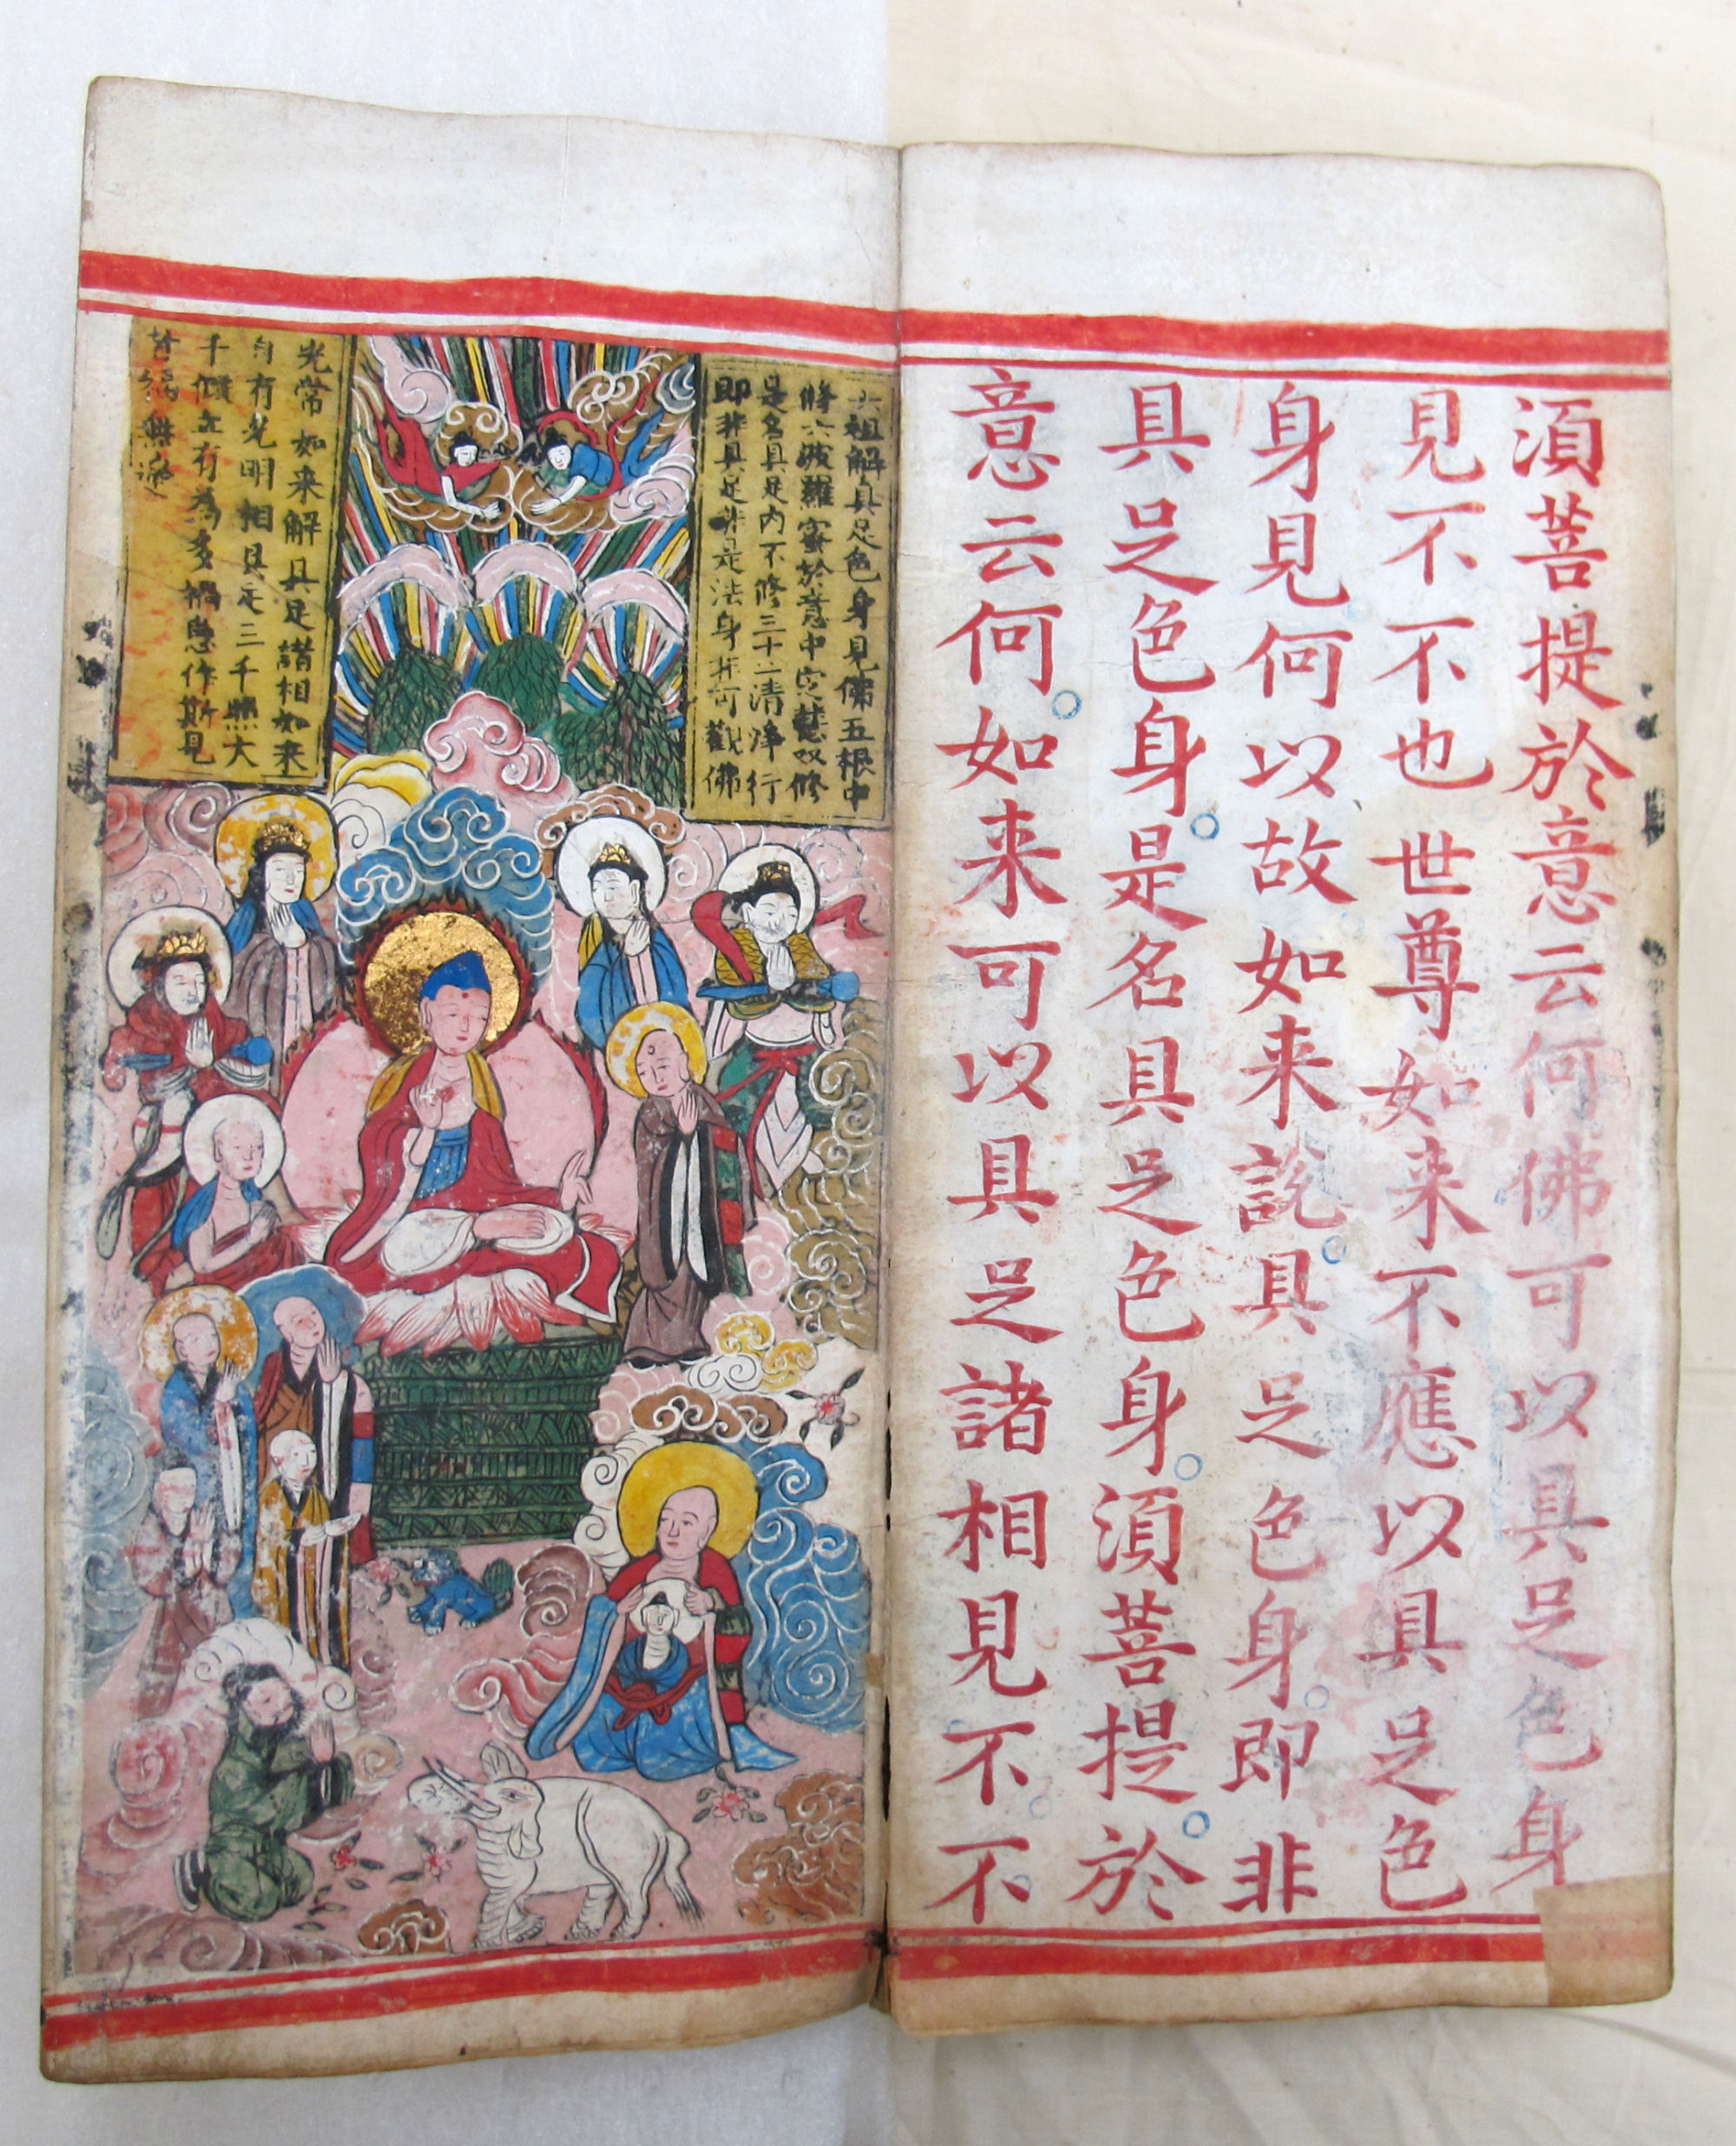 湏菩提於意云何佛可以具足色身
見不不也世尊如来不應以具足色
身見何以故如来説具足色身即非
具足色身是名具足色身湏菩提於
意云何如来可以具足諸相見不不
六祖解具足色身見佛五根中
修六波羅蜜於意中定慧双修
是名具足内不修三十二清淨行
即非具足非是法身非可觀佛
光常如来解具足諸相如来
自有光明相具足三千照大
千有為多作斯見
福無邊